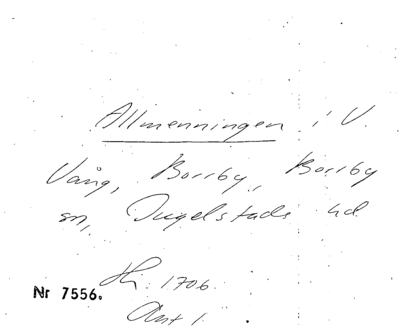 Allmenningen i V.
Vång, Borrby, Borrby
sn, Ingelstads hd
Hi. 1706.
Ant 1.
Nr 7556.